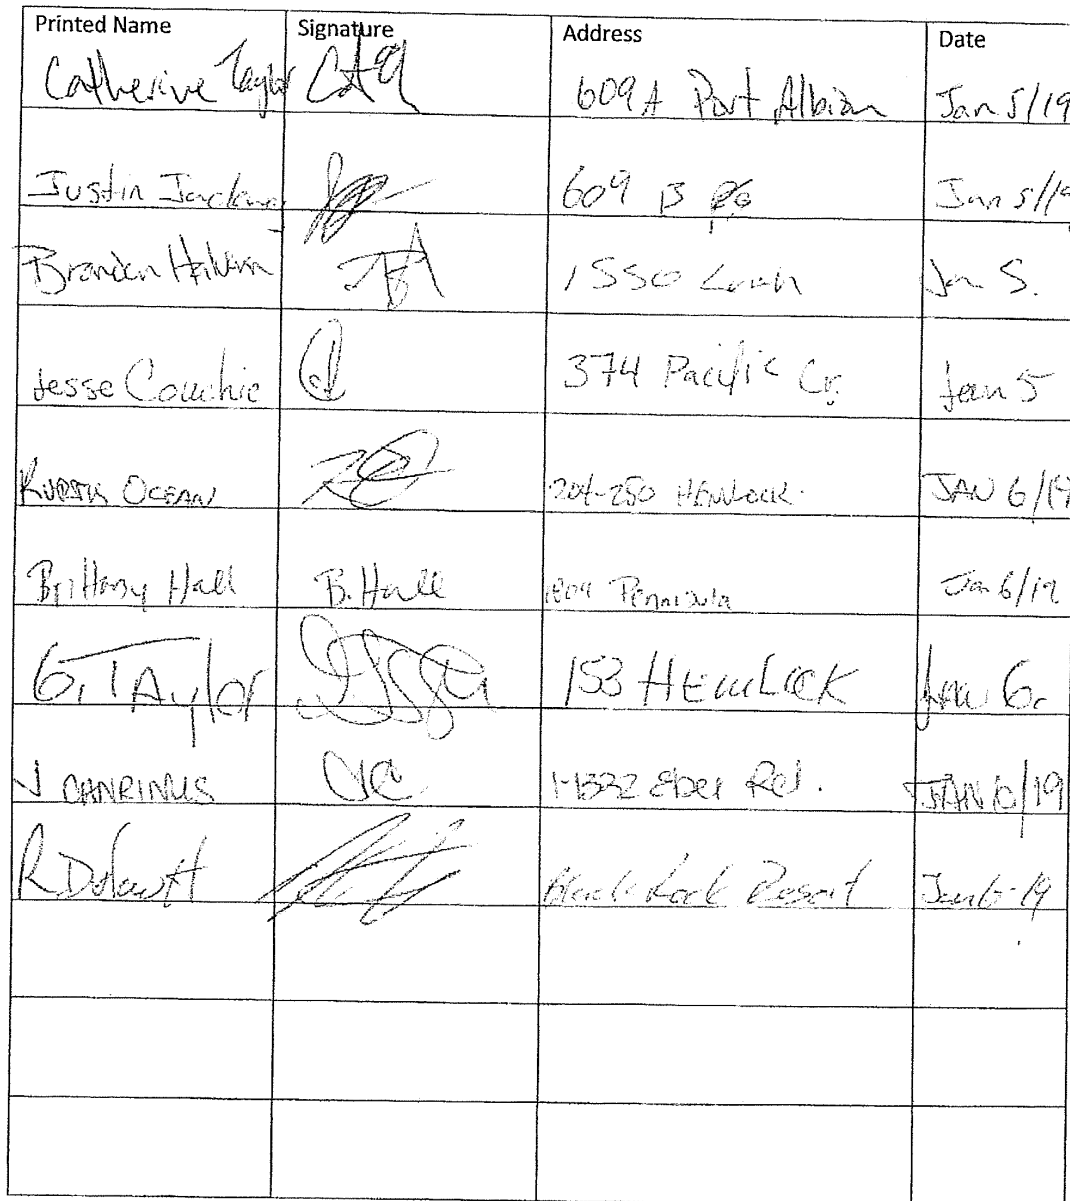 Printed Name Signature Address Date
Catherine Taylor 609A Port Albion Jan 5/19
Justin 609 B Jan 5/19
Brandon 1550 Jan 5.
Jesse Couchie 374 Pacific Cr. Jan 5
Kurtis Ocean 204-250 Hemlock. JAN 6/19
Brittany Hall B. Hall 1809 Peninsula Jan 6/19
G. Taylor 153 Hemlock Jan 6.
J CANRINUS JC Rd. JAN 6/19
R Black Rock Resort Jan 6-19